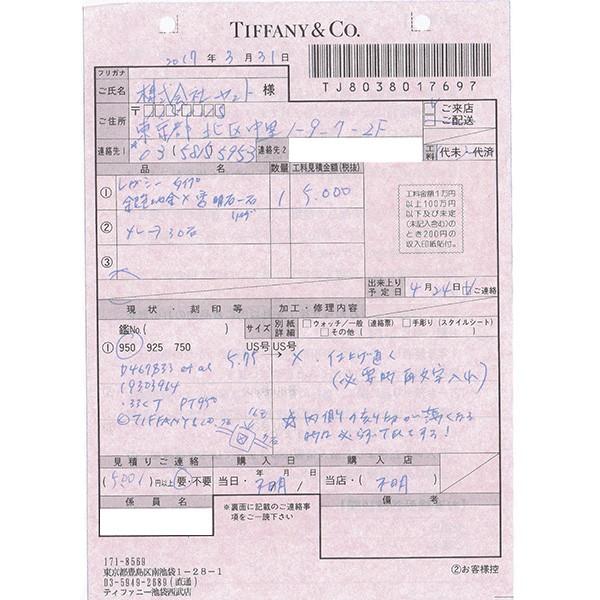 TIFFANY & CO.
2017 年 3 月 31 日
TJ8038017697
フリガナ
ご氏名 株式会社 様
ご来店
ご配送
ご住所 〒
東京都 北区中里 1-9-7-2F
連絡先1 03 (5815) 5953 連絡先2
工料 代未・代済
品 名 数量 工料見積金額(税抜)
① レガシー タイプ 1 5,000
リング
② メレー 30石
③
工料金額1万円
以上100万円
以下及び未定
(未記入含む)の
とき200円の
収入印紙貼付。
出来上り
予定日 4月24日 ご連絡
現 状 ・ 刻 印 等 加 工 ・ 修 理 内 容
鑑No.( ) サイズ 別紙詳細 ウォッチ/一般(連絡票) 手彫り(スタイルシート)
その他( )
① 950 925 750 US号 US号
5.75 → × ・仕上げ直し
D467833 et al (必要時再文字入れ)
19303964
.33CT PT950
©TIFFANY&CO.
見 積 り ご 連 絡 購 入 日 購 入 店
(5001)円以上 要・不要 当日・ 年 月 日 不明 当店・( 不明 )
係 員 名 ※裏面に記載のご連絡事
項をご一読下さい 備 考
171-8569
東京都豊島区南池袋1-28-1
03-5949-2689(直通)
ティファニー池袋西武店
②お客様控